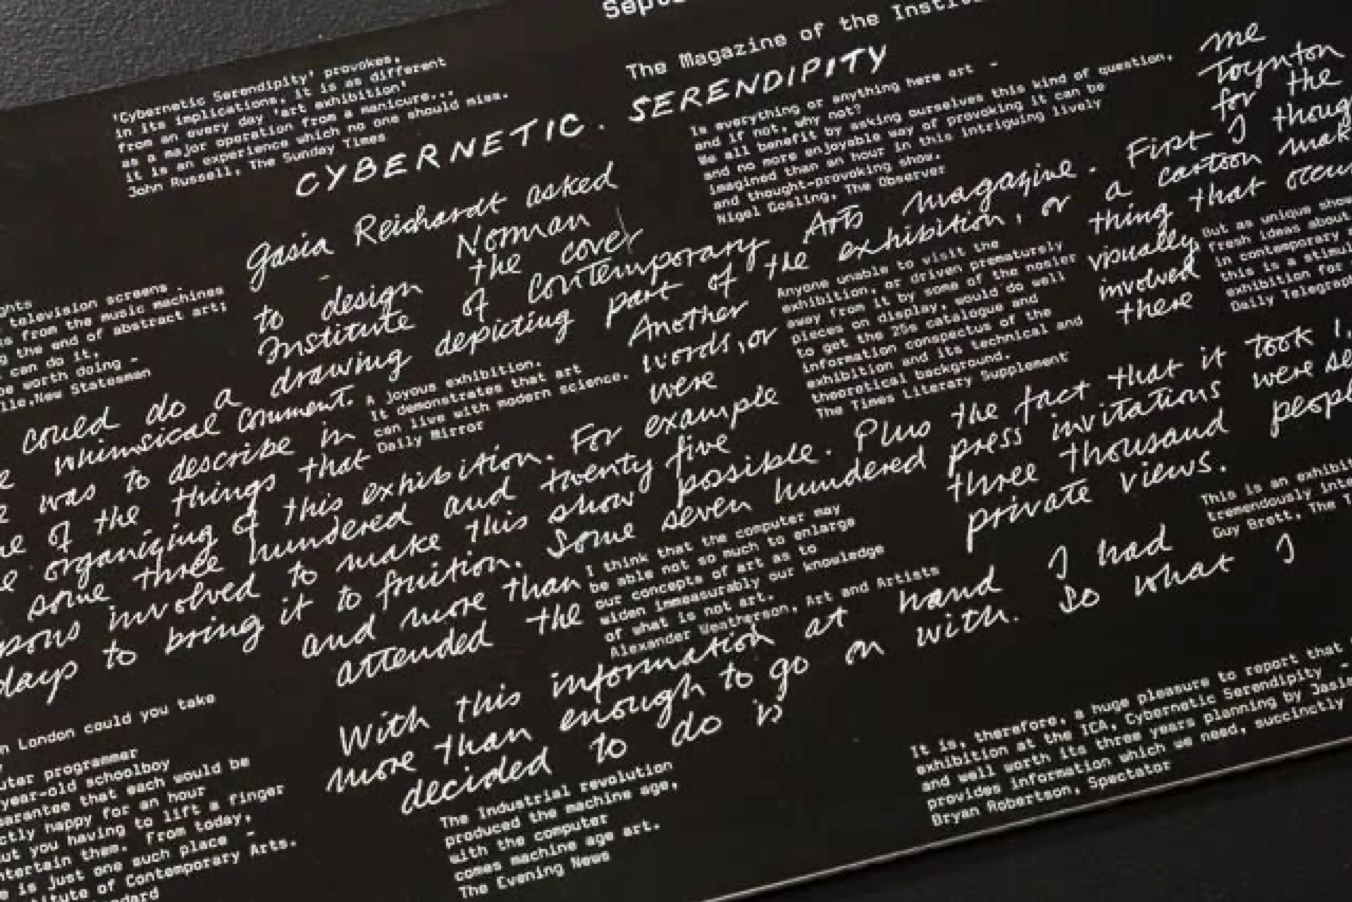 The Magazine of the
'Cybernetic Serendipity' provokes,
in its implications, it is as different
from an every day 'art exhibition'
as a major operation from a manicure...
it is an experience which no one should miss.
John Russell, The Sunday Times
CYBERNETIC . SERENDIPITY
Is everything or anything here art -
and if not, why not?
We all benefit by asking ourselves this kind of question,
and no more enjoyable way of provoking it can be
imagined than an hour in this intriguing lively
and thought-provoking show.
Nigel Gosling, The Observer
Gasia Reichardt asked me
Norman Toynton
to design the cover for the
Institute of Contemporary Arts magazine. First I
drawing depicting part of the exhibition, or a cartoon
could do a
whimsical comment. Another thing that
was to describe in words, or visually
of the things that were involved
organizing of this exhibition. For example there
some three hundered and twenty five
involved to make this show possible. Plus the fact that it took
to bring it to fruition. Some seven hundered press invitations were
and more than three thousand
attended the private views.
television screens -
from the music machines
the end of abstract art;
can do it,
worth doing -
New Statesman
A joyous exhibition.
It demonstrates that art
can live with modern science.
Daily Mirror
Anyone unable to visit the
exhibition, or driven prematurely
away from it by some of the noisier
pieces on display, would do well
to get the 25s catalogue and
information conspectus of the
exhibition and its technical and
theoretical background.
The Times Literary Supplement
But as unique
fresh ideas about
in contemporary
this is a
exhibition for
Daily
I think that the computer may
be able not so much to enlarge
our concepts of art as to
widen immeasurably our knowledge
of what is not art.
Alexander Weatherson, Art and Artists
This is an
tremendously
Guy Brett, The
With this information at hand I had
more than enough to go on with. So what I
decided to do is
London could you take
programmer
schoolboy
that each would be
happy for an hour
you having to lift a finger
them. From today,
is just one such place -
of Contemporary Arts.
The Industrial revolution
produced the machine age,
with the computer
comes machine age art.
The Evening News
It is, therefore, a huge pleasure to report that
exhibition at the ICA, Cybernetic Serendipity -
and well worth its three years planning by
provides information which we need, succinctly
Bryan Robertson, Spectator